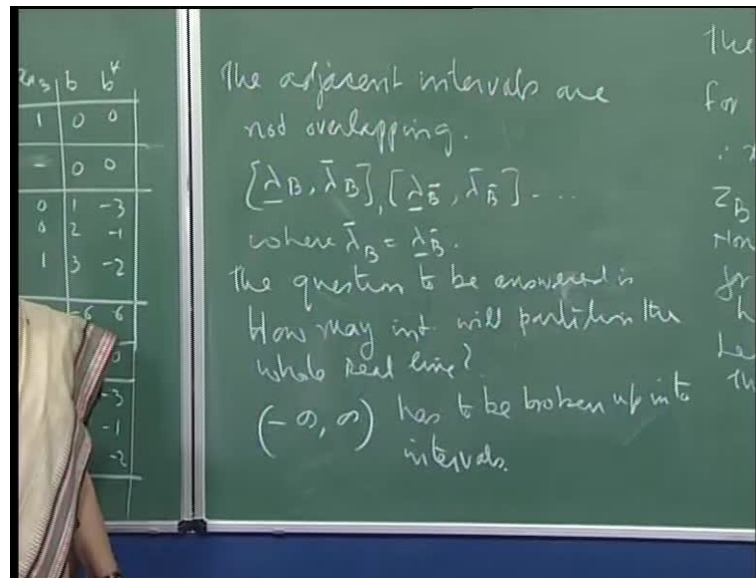 b b*
1 0 0
- 0 0
0 1 -3
0 2 -1
1 3 -2
-6 6
0
-3
-1
-2
The adjacent intervals are
not overlapping.
[λ̲_B, λ̄_B], [λ̲_B̄, λ̄_B̄] ....
where λ̄_B = λ̲_B̄.
The question to be answered is
How may int will partition the
whole real line?
(-∞, ∞) has to be broken up into
intervals.
The
for
Z_B
Non
Th